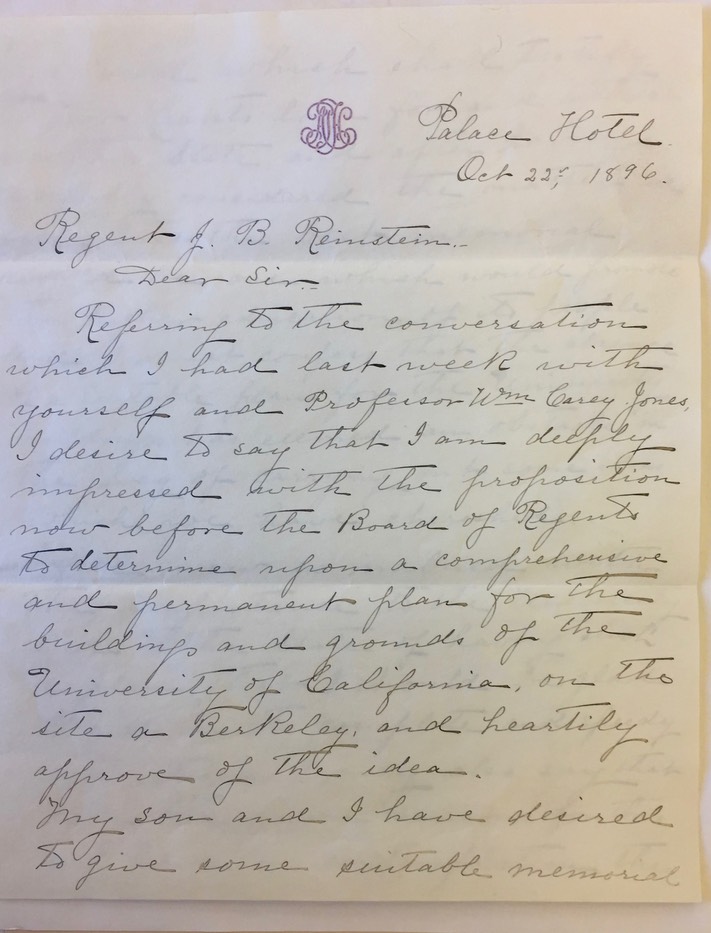 Palace Hotel.
Oct 22d, 1896.
Regent J. B. Reinstein.—
Dear Sir.—
Referring to the conversation
which I had last week with
yourself and Professor Wm Carey Jones,
I desire to say that I am deeply
impressed with the proposition
now before the Board of Regents
to determine upon a comprehensive
and permanent plan for the
buildings and grounds of the
University of California, on the
site a Berkeley, and heartily
approve of the idea.
My son and I have desired
to give some suitable memorial